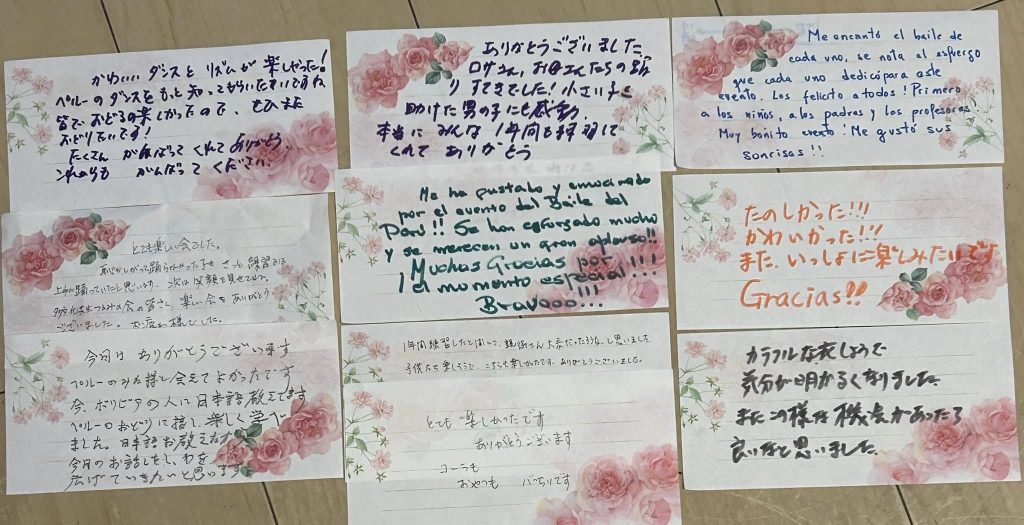 かわいいダンスとリズムが楽しかった!
ペルーのダンスをもっと知ってもらいたいですね
皆でおどるの楽しかったので、ぜひまた
おどりたいです!
たくさん がんばってくれてありがとう。
これからも がんばってください。
ありがとうございました
ロサさん、お母さんたちの踊
り すてきでした! 小さい子を
助けた男の子にも感動。
本当に みんな 1年間も練習して
くれて ありがとう
Me encantó el baile de
cada uno, se nota el esfuerzo
que cada uno dedicó para este
evento. Los felicito a todos! Primero
a los niños, a los padres y las profesoras
Muy bonito evento! Me gustó sus
sonrisas!!
とても楽しい会でした。
恥ずかしがって踊らなかった子も、きっと練習では
上手に踊っていたと思います。次は笑顔を見せてね。
の会の皆さん、楽しい会をありがとう
ございました。お疲れ様でした。
Me ha gustado y emocionado
por el evento del Baile del
Perú!! Se han esforzado mucho
y se merecen un gran aplauso!!
¡Muchas Gracias por
el momento especial!!!
Bravooo...!!!
たのしかった!!!
かわいかった!!!
また、いっしょに楽しみたいです
Gracias!!
今日は ありがとうございます
ペルーのみな様に会えてよかったです
今、ボリビアの人に日本語教えてます
ペルーのおどりに接し、楽しく学べ
ました。日本語お教え方
今日のお話しをし、わを
広げていきたいと思います
1年間練習したと聞いて、親御さん大変だったろうな、と思いました
子供たち楽しそうで、こちらも楽しかったです。ありがとうございました。
とても 楽しかったです
ありがとうございます
コーラも
おやつも バッチリです
カラフルな衣しょうで
気分が明かるくなりました。
またこの様な機会があったら
良いなと思いました。